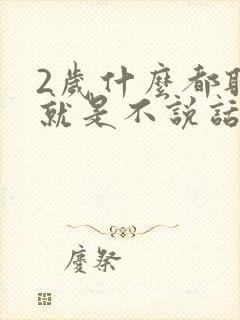 2歲什麼都
就是不說話
慶祭